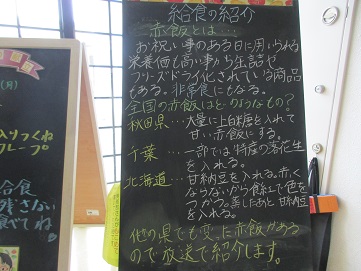 給食の紹介
赤飯とは…
お祝い事のある日に用いられる
栄養価も高い事から缶詰や
フリーズドライ化されている商品
もある。非常食にもなる。
全国の赤飯はどのようなもの?
秋田県…大量に上白糖を入れて
甘い赤飯にする。
千葉…一部では特産の落花生
を入れる。
北海道…甘納豆を入れる。赤く
ならないから食紅で色を
つかう。蒸したあと甘納豆
を入れる。
他の県でも変った赤飯がある
ので放送で紹介します。
(月)
入りつくね
スープ
給食
残さない
食べてね。